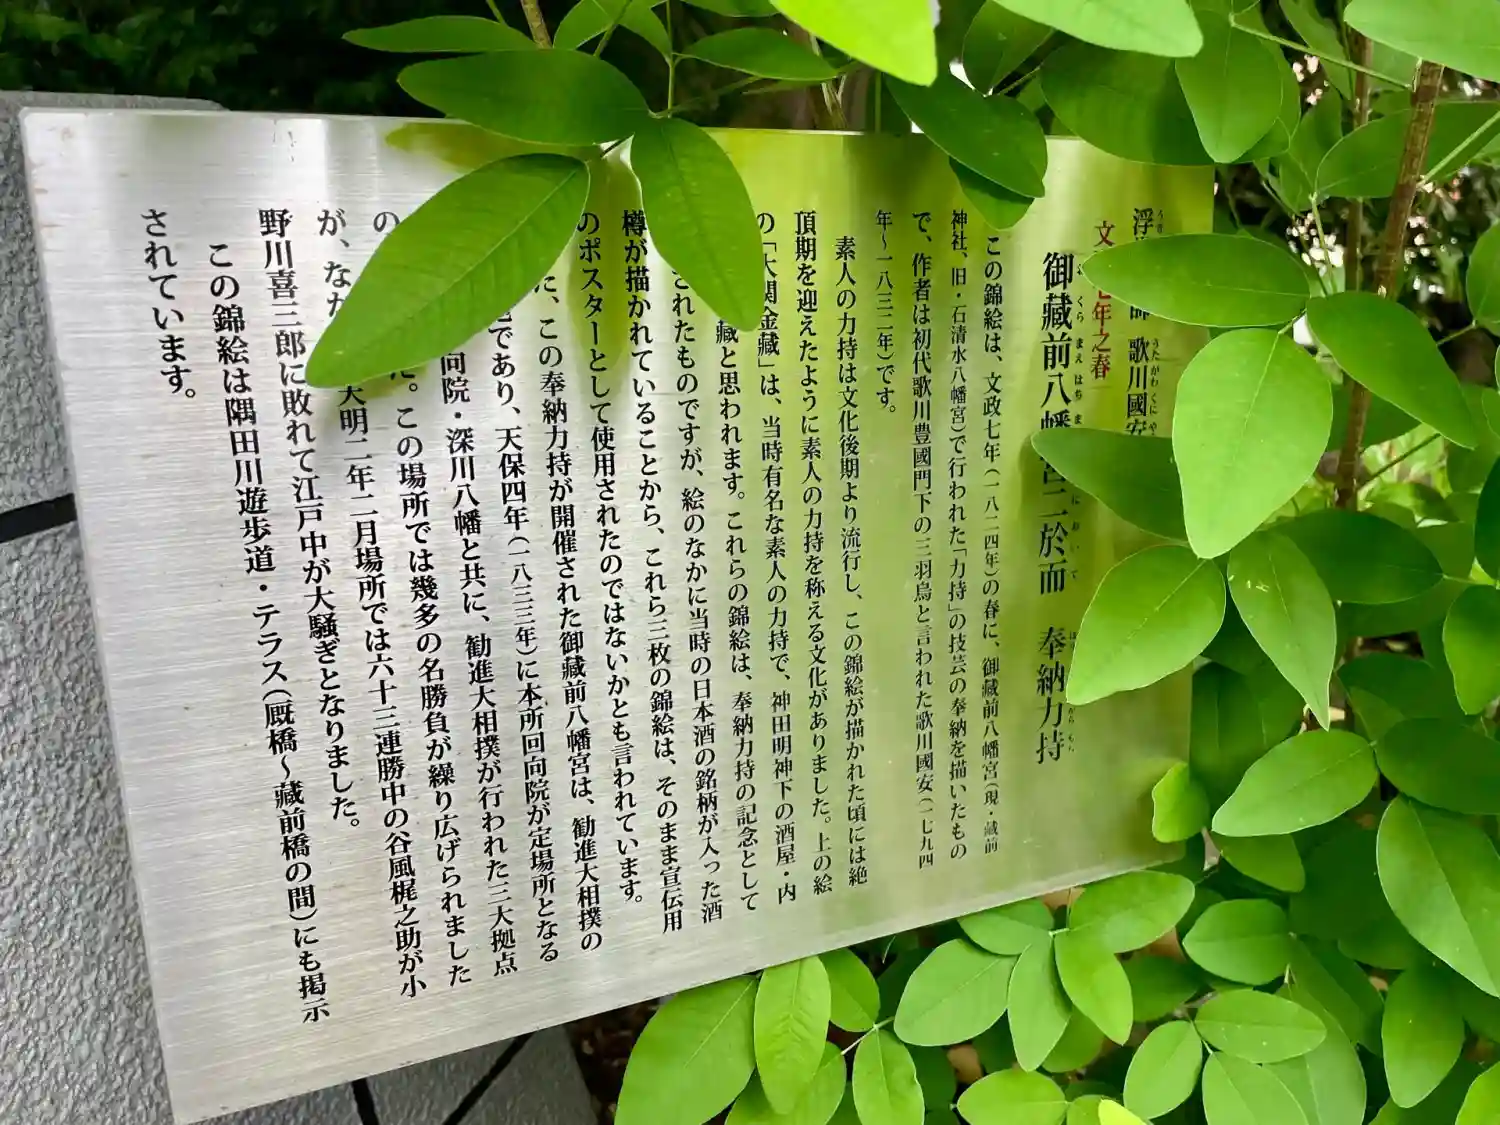 浮 師 歌川國安
うたがわくにや
文 七年之春
御藏前八幡宮二於而 奉納力持
この錦絵は、文政七年(一八二四年)の春に、御藏前八幡宮(現・蔵前
神社、旧・石清水八幡宮)で行われた「力持」の技芸の奉納を描いたもの
で、作者は初代歌川豊國門下の三羽烏と言われた歌川國安(一七九四
年〜一八三二年)です。
素人の力持は文化後期より流行し、この錦絵が描かれた頃には絶
頂期を迎えたように素人の力持を称える文化がありました。上の絵
の「大関金藏」は、当時有名な素人の力持で、神田明神下の酒屋・内
藏と思われます。これらの錦絵は、奉納力持の記念として
されたものですが、絵のなかに当時の日本酒の銘柄が入った酒
樽が描かれていることから、これら三枚の錦絵は、そのまま宣伝用
のポスターとして使用されたのではないかとも言われています。
た、この奉納力持が開催された御藏前八幡宮は、勧進大相撲の
であり、天保四年(一八三三年)に本所回向院が定場所となる
向院・深川八幡と共に、勧進大相撲が行われた三大拠点
の た。この場所では幾多の名勝負が繰り広げられました
が、な 天明二年二月場所では六十三連勝中の谷風梶之助が小
野川喜三郎に敗れて江戸中が大騒ぎとなりました。
この錦絵は隅田川遊歩道・テラス(厩橋〜藏前橋の間)にも掲示
されています。